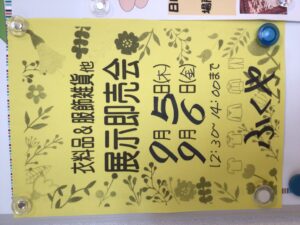 衣料品&服飾雑貨他
展示即売会
9月5日(木)
9月6日(金)
12:30~14:00まで
ふくや